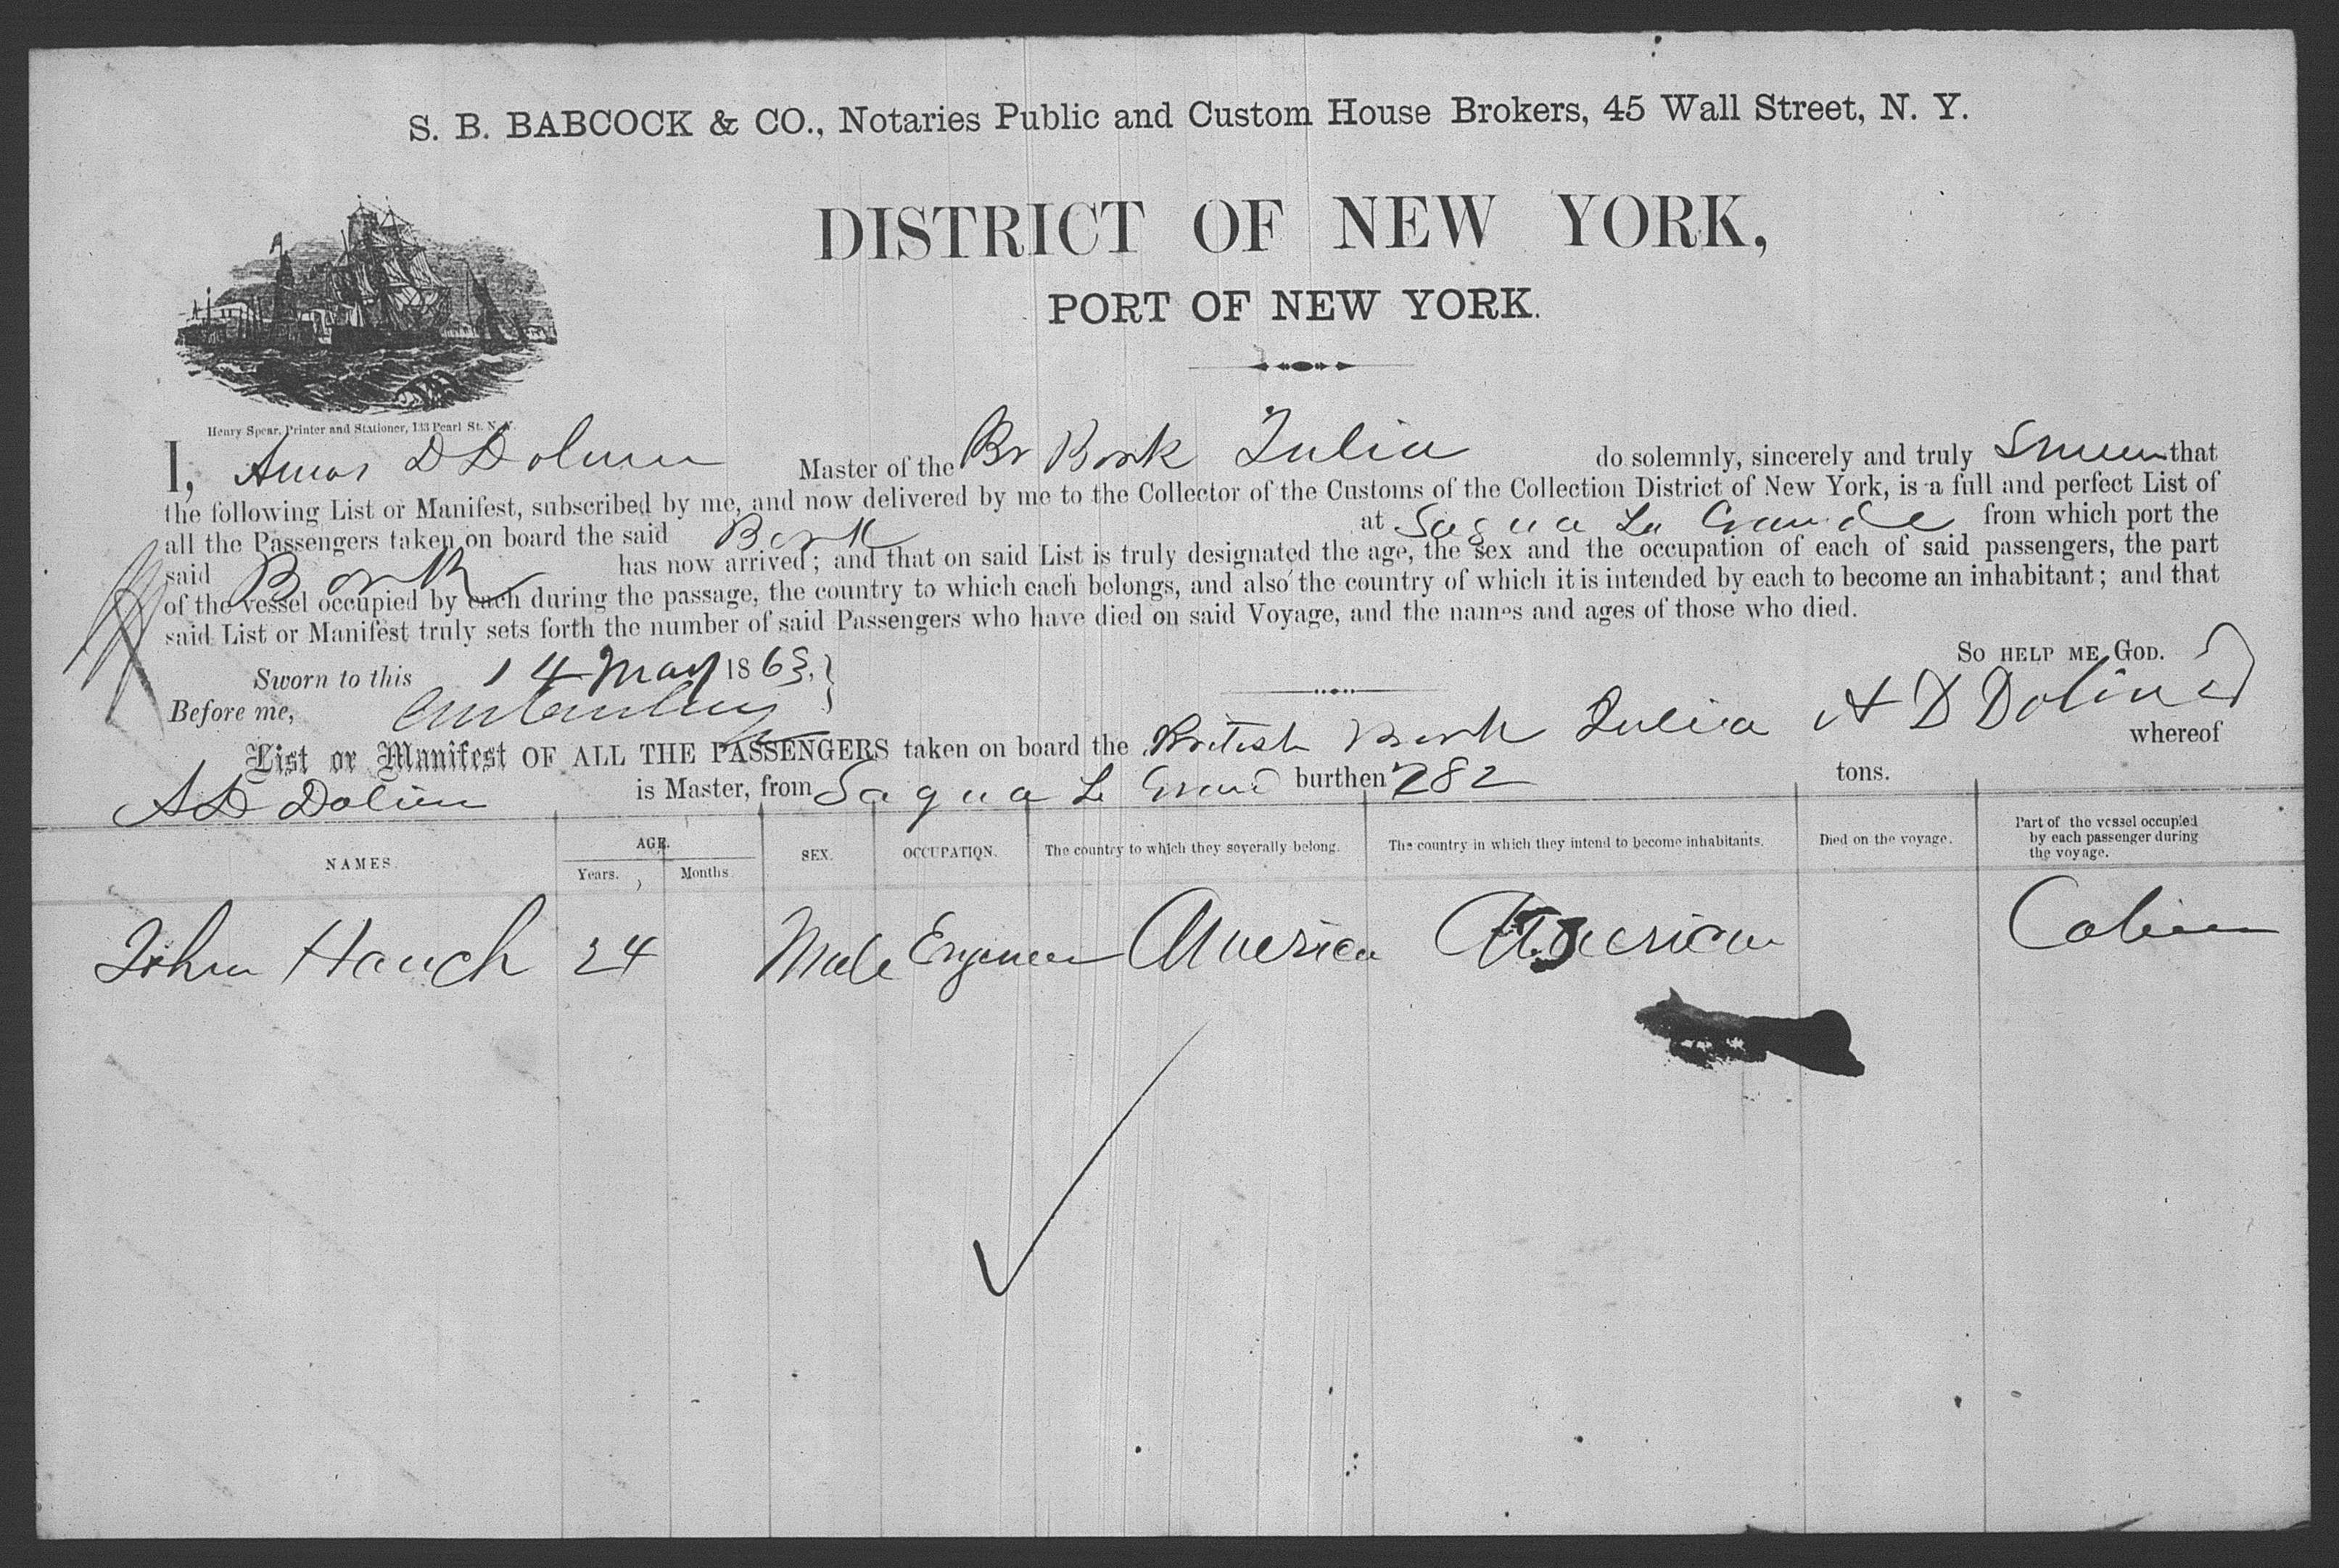 S. B. BABCOCK & CO., Notaries Public and Custom House Brokers, 45 Wall Street, N. Y.
DISTRICT OF NEW YORK,
PORT OF NEW YORK.
Henry Spear, Printer and Stationer, 133 Pearl St. N. Y.
I, Amos D Master of the Br Bark Julia do solemnly, sincerely and truly that
the following List or Manifest, subscribed by me, and now delivered by me to the Collector of the Customs of the Collection District of New York, is a full and perfect List of
all the Passengers taken on board the said Bark at Sagua La Grande from which port the
said Bark has now arrived; and that on said List is truly designated the age, the sex and the occupation of each of said passengers, the part
of the vessel occupied by each during the passage, the country to which each belongs, and also the country of which it is intended by each to become an inhabitant; and that
said List or Manifest truly sets forth the number of said Passengers who have died on said Voyage, and the names and ages of those who died.
SO HELP ME GOD.
Sworn to this 14 May 1863.
Before me,
A D
List or Manifest OF ALL THE PASSENGERS taken on board the British Bark Julia whereof
A D is Master, from Sagua La Grand burthen 282 tons.
NAMES. AGE. SEX. OCCUPATION. The country to which they severally belong. The country in which they intend to become inhabitants. Died on the voyage. Part of the vessel occupied by each passenger during the voyage.
Years. Months.
John Hauch 24 Male Engineer America American Cabin